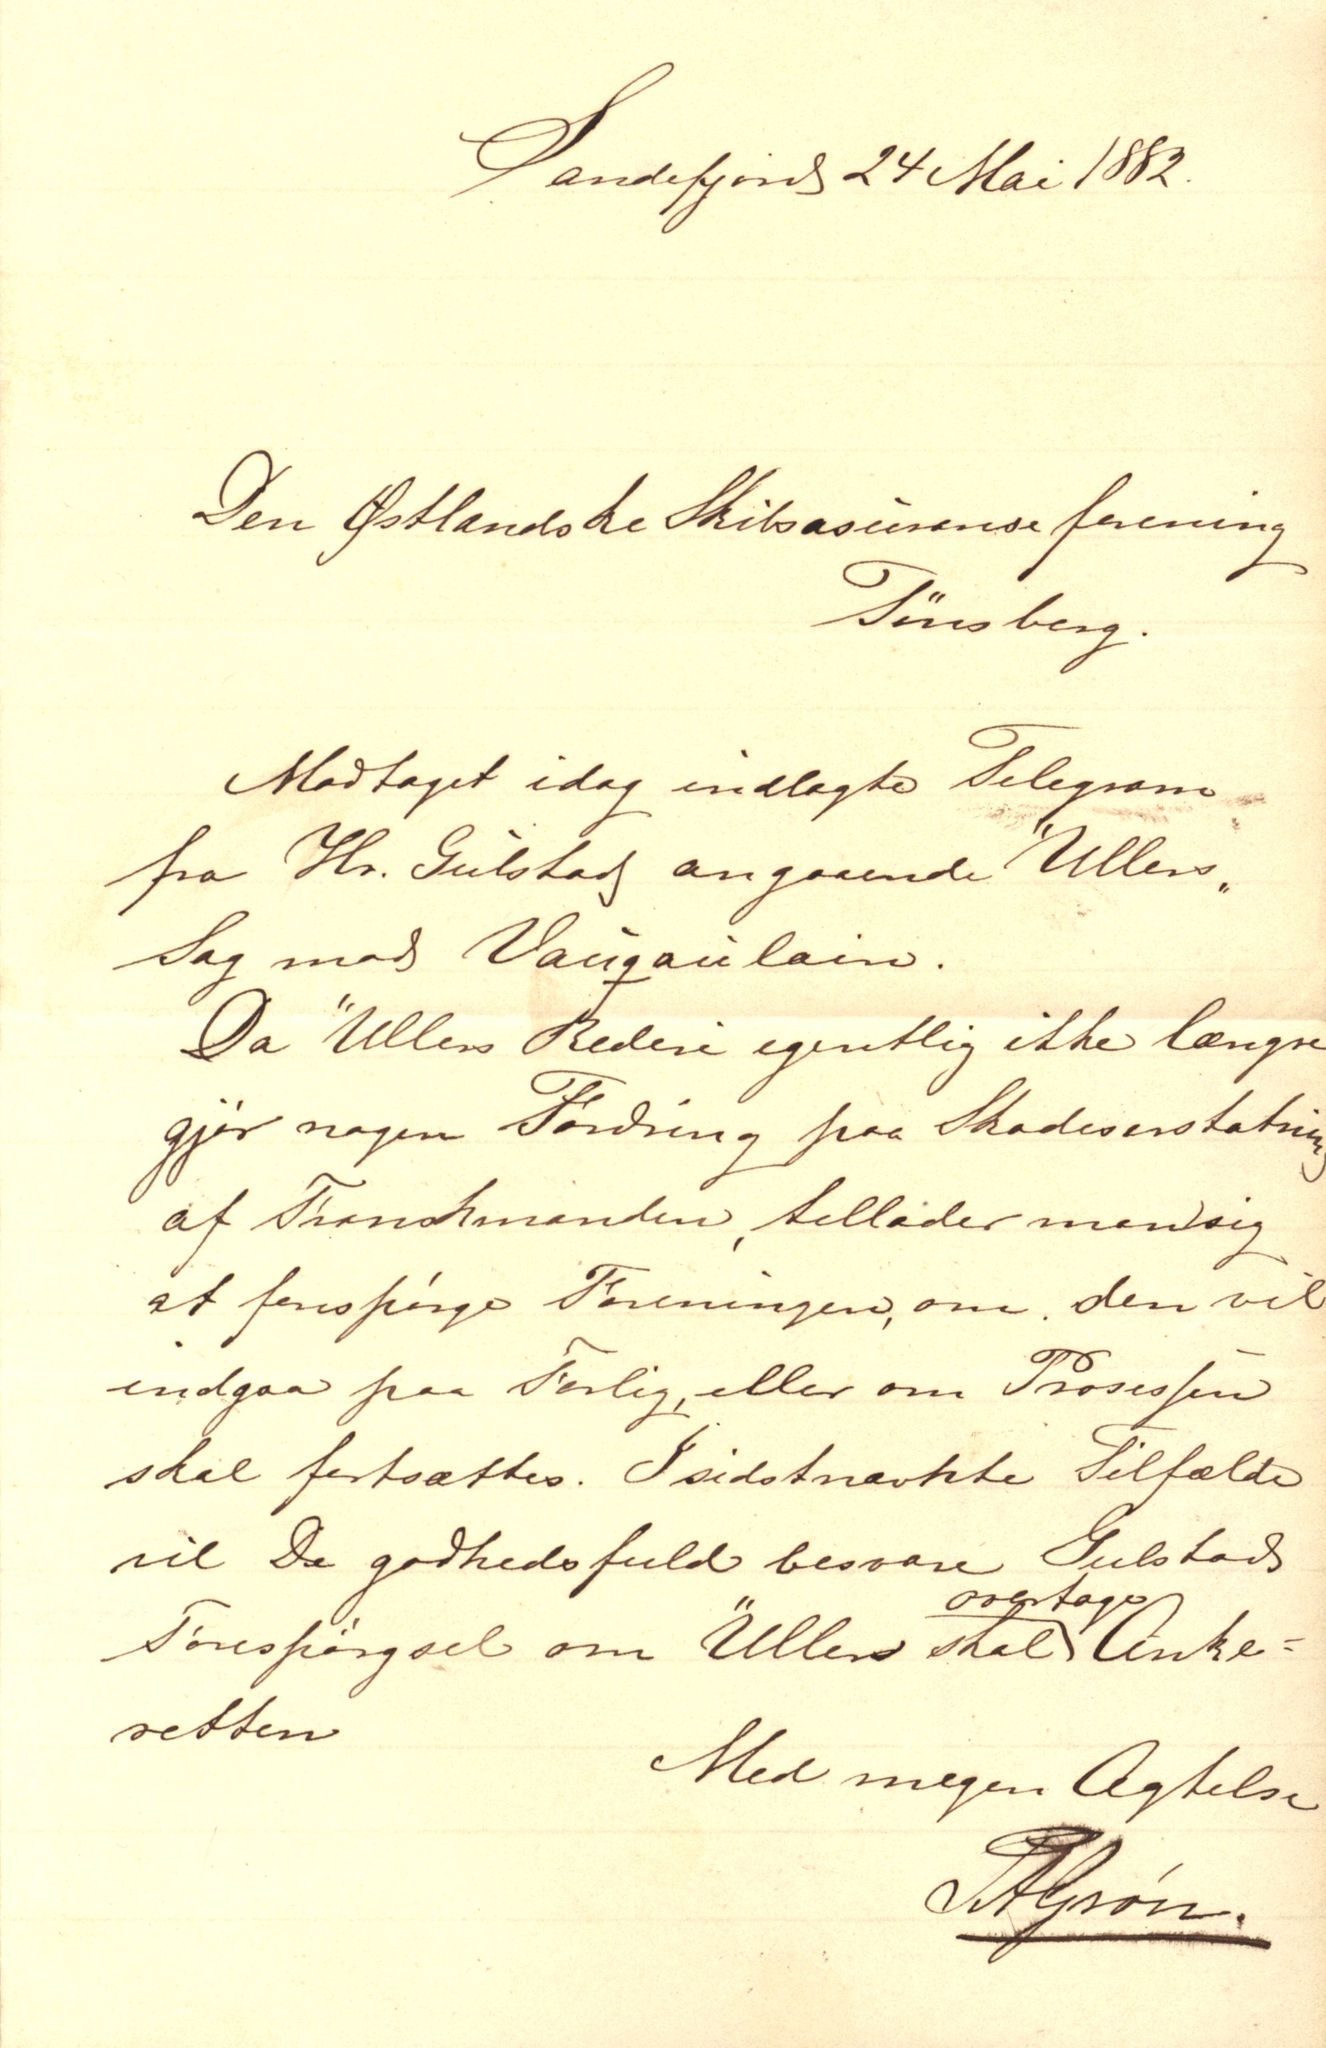 Sandefjord 24 Mai 1882.
Den Østlandske Skibsasurance forening
Tönsberg.
Modtaget idag indlagte Telegram
fra Hr. Gulstad angaaende "Ullers„
Sag mod Vauqaulain.
Da "Ullers Rederi egentlig ikke længre
gjør nogen Fordring paa Skadeserstatning
af Franskmanden, tillader man sig
at forespørge Foreningen, om den vil
indgaa paa Forlig, eller om Prosessen
skal fortsættes. I sidstnævnte Tilfælde
vil De godhedsfuld besvare Gulstads
overtage
Forespörgsel om "Ullers skal Anke=
retten
Med megen Agtelse
PAGrøn.